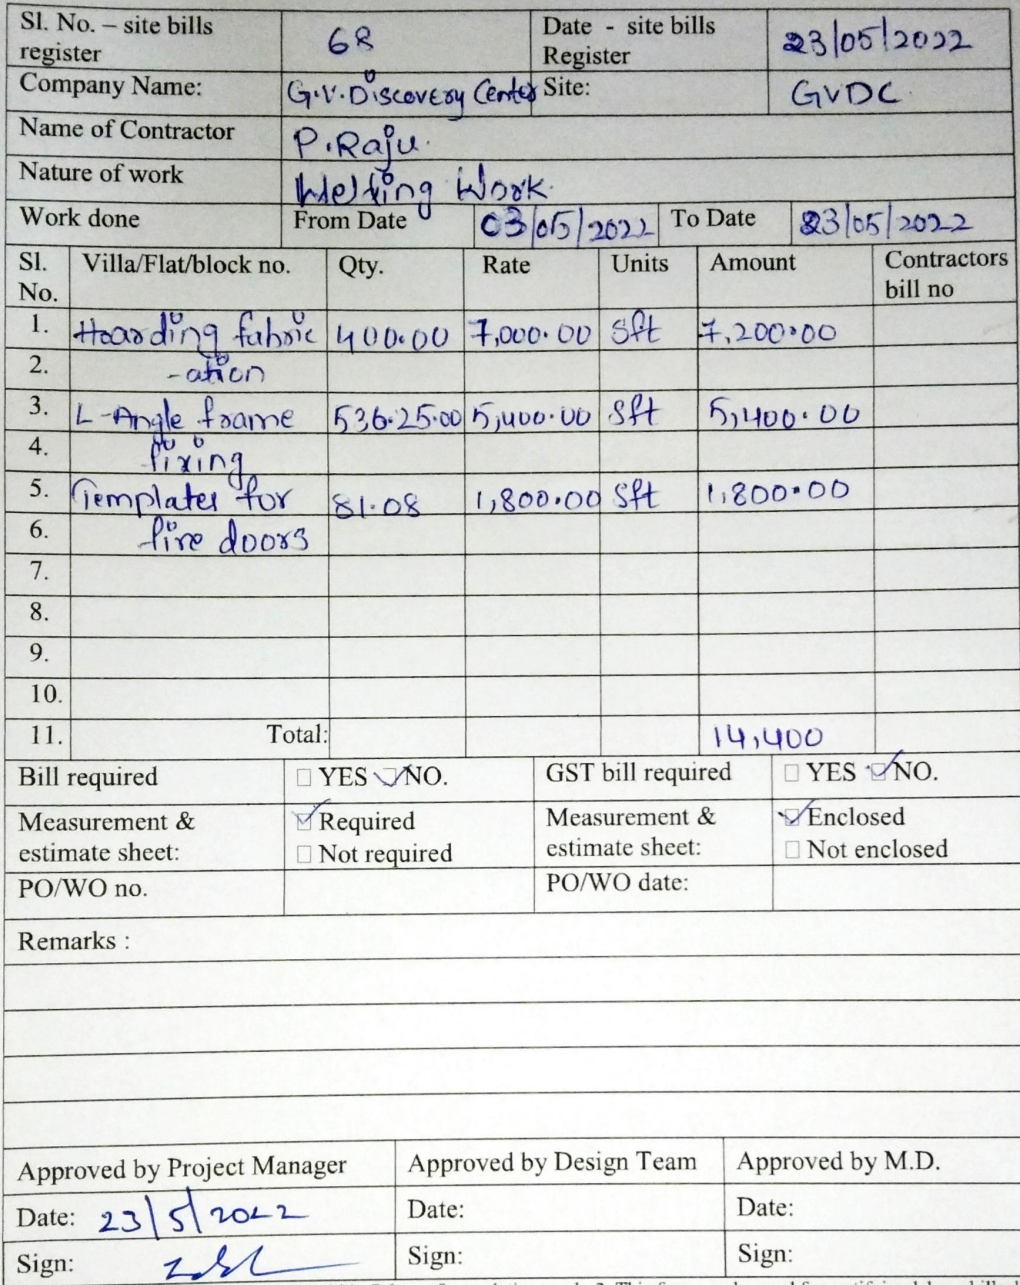 Sl. No. – site bills register 68 Date - site bills Register 23/05/2022
Company Name: G.V. Discovery Center Site: GVDC
Name of Contractor P. Raju.
Nature of work Welding Work.
Work done From Date 03/05/2022 To Date 23/05/2022
Sl. No. Villa/Flat/block no. Qty. Rate Units Amount Contractors bill no
1. Hoarding fabric 400.00 7,000.00 Sft 7,200.00
2. -ation
3. L-Angle frame 536.25.00 5,400.00 Sft 5,400.00
4. fixing
5. Templates for 81.08 1,800.00 Sft 1,800.00
6. fire doors
7.
8.
9.
10.
11. Total: 14,400
Bill required YES NO. GST bill required YES NO.
Measurement & estimate sheet: Required Not required Measurement & estimate sheet: Enclosed Not enclosed
PO/WO no. PO/WO date:
Remarks :
Approved by Project Manager Approved by Design Team Approved by M.D.
Date: 23/5/2022 Date: Date:
Sign: Sign: Sign: